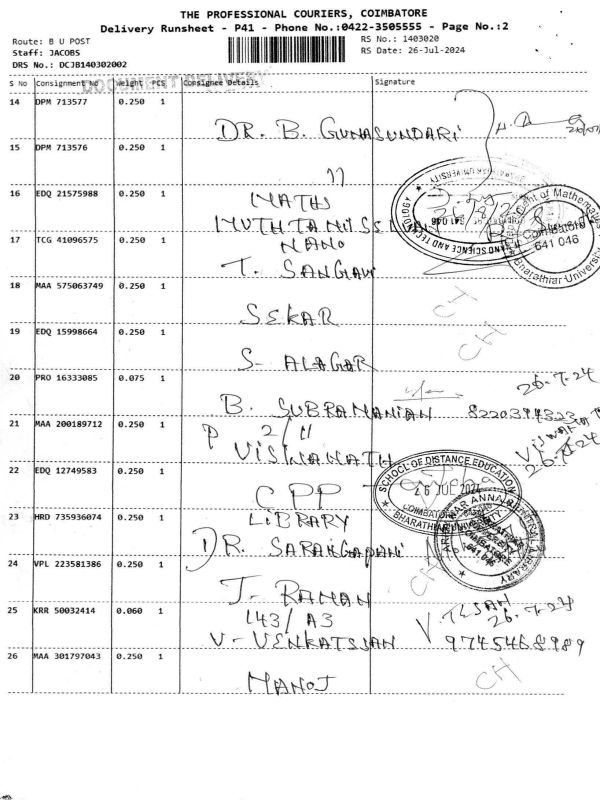 THE PROFESSIONAL COURIERS, COIMBATORE
Delivery Runsheet - P41 - Phone No.:0422-3505555 - Page No.:2
Route: B U POST
RS No.: 1403020
Staff: JACOBS
RS Date: 26-Jul-2024
DRS No.: DCJB140302002
DOCUMENT DELIVERY
S No Consignment No Weight PCS Consignee Details Signature
14 DPM 713577 0.250 1
DR. B. GUNASUNDARI
15 DPM 713576 0.250 1
11
16 EDQ 21575988 0.250 1
MATHS
NANO
17 TCG 41096575 0.250 1
Department of Mathematics
Coimbatore
641 046
Bharathiar University
18 MAA 575063749 0.250 1
SEKAR
CH
19 EDQ 15998664 0.250 1
S- ALAGAR
CH
20 PRO 16333085 0.075 1
B. SUBRAMANIAN
26-7-24
21 MAA 200189712 0.250 1
VISWANATH
26.7.24
22 EDQ 12749583 0.250 1
CPP
SCHOOL OF DISTANCE EDUCATION
26 JUL 2024
COIMBATORE
BHARATHIAR UNIVERSITY
LIBRARY
23 HRD 735936074 0.250 1
DR. SARANGAPANI
24 VPL 223581386 0.250 1
CH
J- RAMAN
25 KRR 50032414 0.060 1
143/A3
V-VENKATSSAN
26-7-24
9745468989
26 MAA 301797043 0.250 1
MANOJ
CH